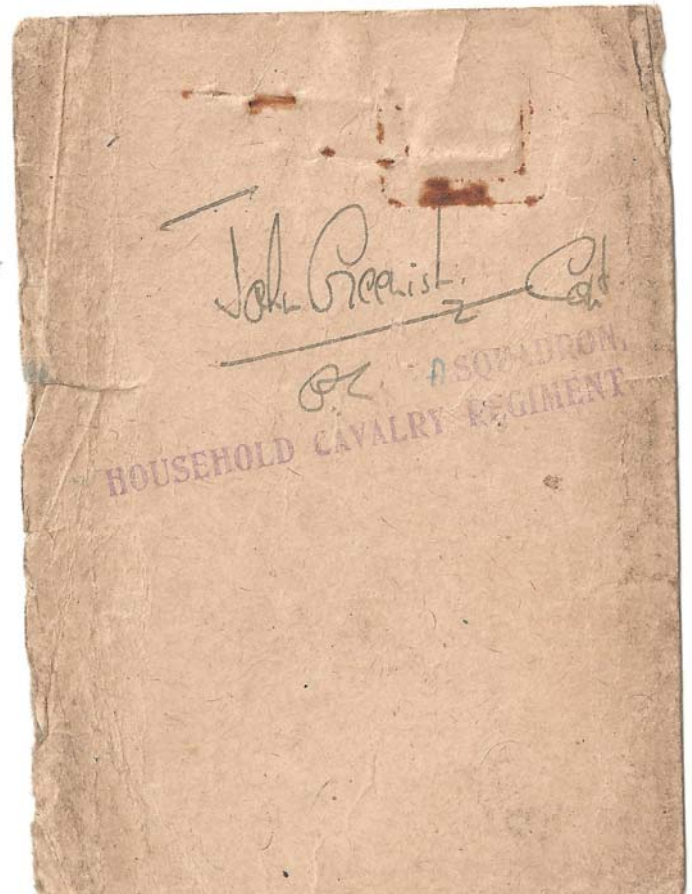 John Greenish. Capt
A SQUADRON,
HOUSEHOLD CAVALRY REGIMENT.